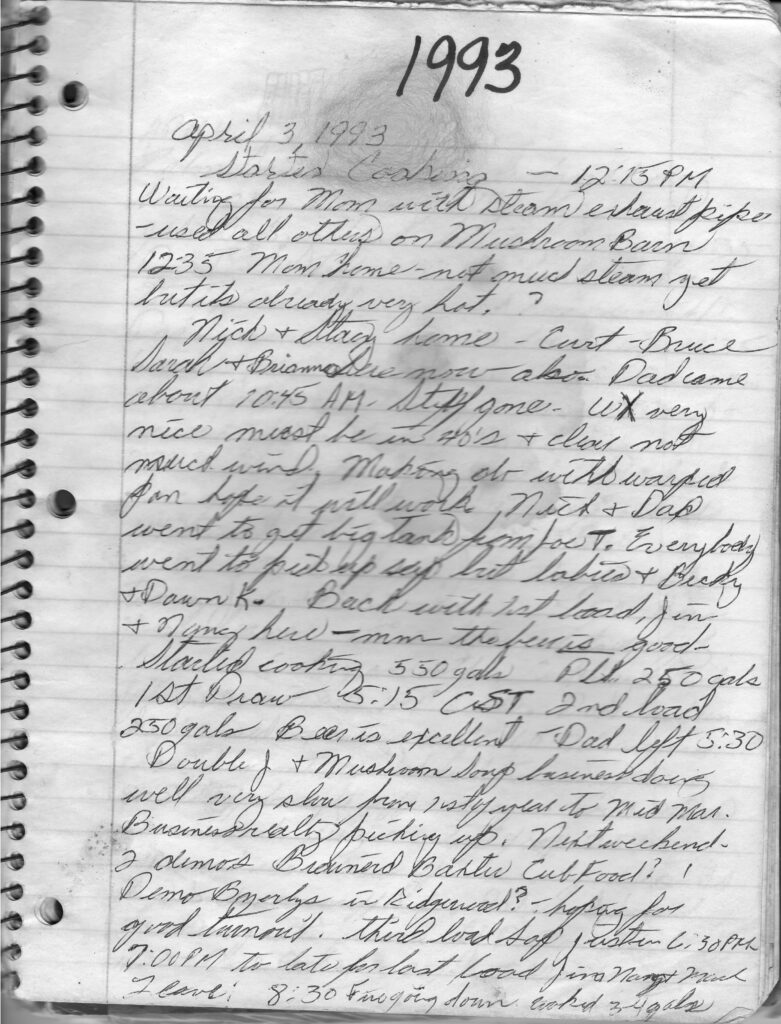 1993
April 3, 1993
Started Cooking — 12:15 PM
Waiting for Mom with steam exhaust pipe
-used all others on Mushroom Barn
12:35 Mom home - not much steam yet
but its already very hot.
Nick + Stacy home - Curt - Bruce
Sarah + Brianna here now also. Dad came
about 10:45 AM - Still gone - WX very
nice must be in 40's + clear not
much wind. Making do with warped
pan hope it will work Nick + Dad
went to get big tank from Joe T. Everybody
went to pick up sap but babies + Becky
+ Dawn K. Back with 1st load, Jim
+ Nancy here - mm the beer is good -
Started cooking 550 gals P.U. 250 gals
1st Draw 5:15 CST 2nd load
250 gals Beer is excellent - Dad left 5:30
Double J + Mushroom Soup business doing
well very slow from 1st of year to Mid Mar.
Business really picking up. Next weekend -
2 demos Brainerd Baxter Cub Food?
Demo Byerlys in Ridgewood? - hoping for
good turnout. third load sap just in 6:30 PM
7:00 PM to late for last load Jim Nancy +
Leave! 8:30 Fire going down cooked